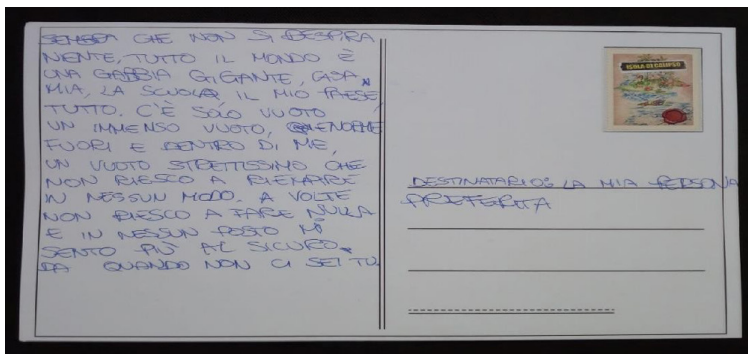 SEMBRA CHE NON SI RESPIRA
NIENTE, TUTTO IL MONDO È
UNA GABBIA GIGANTE, CASA
MIA, LA SCUOLA, IL MIO PAESE
TUTTO. C'È SOLO VUOTO
UN IMMENSO VUOTO, ENORME
FUORI E DENTRO DI ME,
UN VUOTO STRETTISSIMO CHE
NON RIESCO A RIEMPIRE
IN NESSUN MODO. A VOLTE
NON RIESCO A FARE NULLA
E IN NESSUN POSTO MI
SENTO PIÙ AL SICURO.
DA QUANDO NON CI SEI TU.
DESTINATARIO: LA MIA PERSONA
PREFERITA